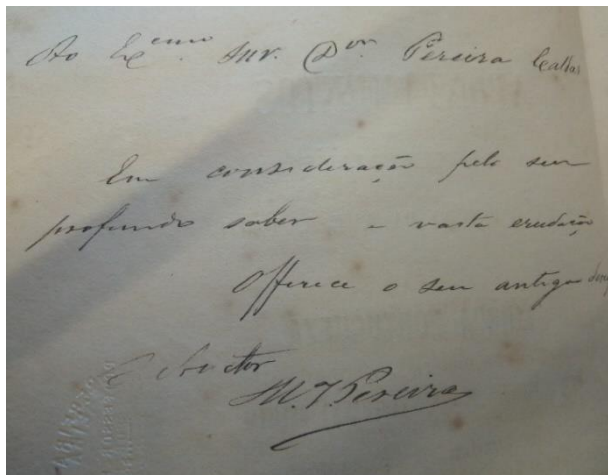 Ao Ex.cmo Snr. Dor. Pereira Caldas
Em consideração pelo seu
profundo saber e vasta erudição
Offerece o seu antigo
O Auctor
M. J. Pereira